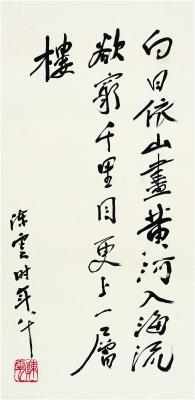 白日依山盡黄河入海流
欲窮千里目更上一層
樓
陈雲时年八十
陳雲